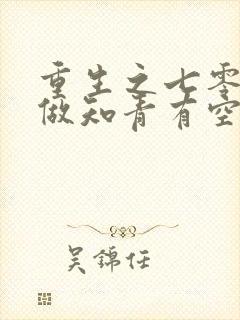 重生之七零
做知青有空
吴锦任